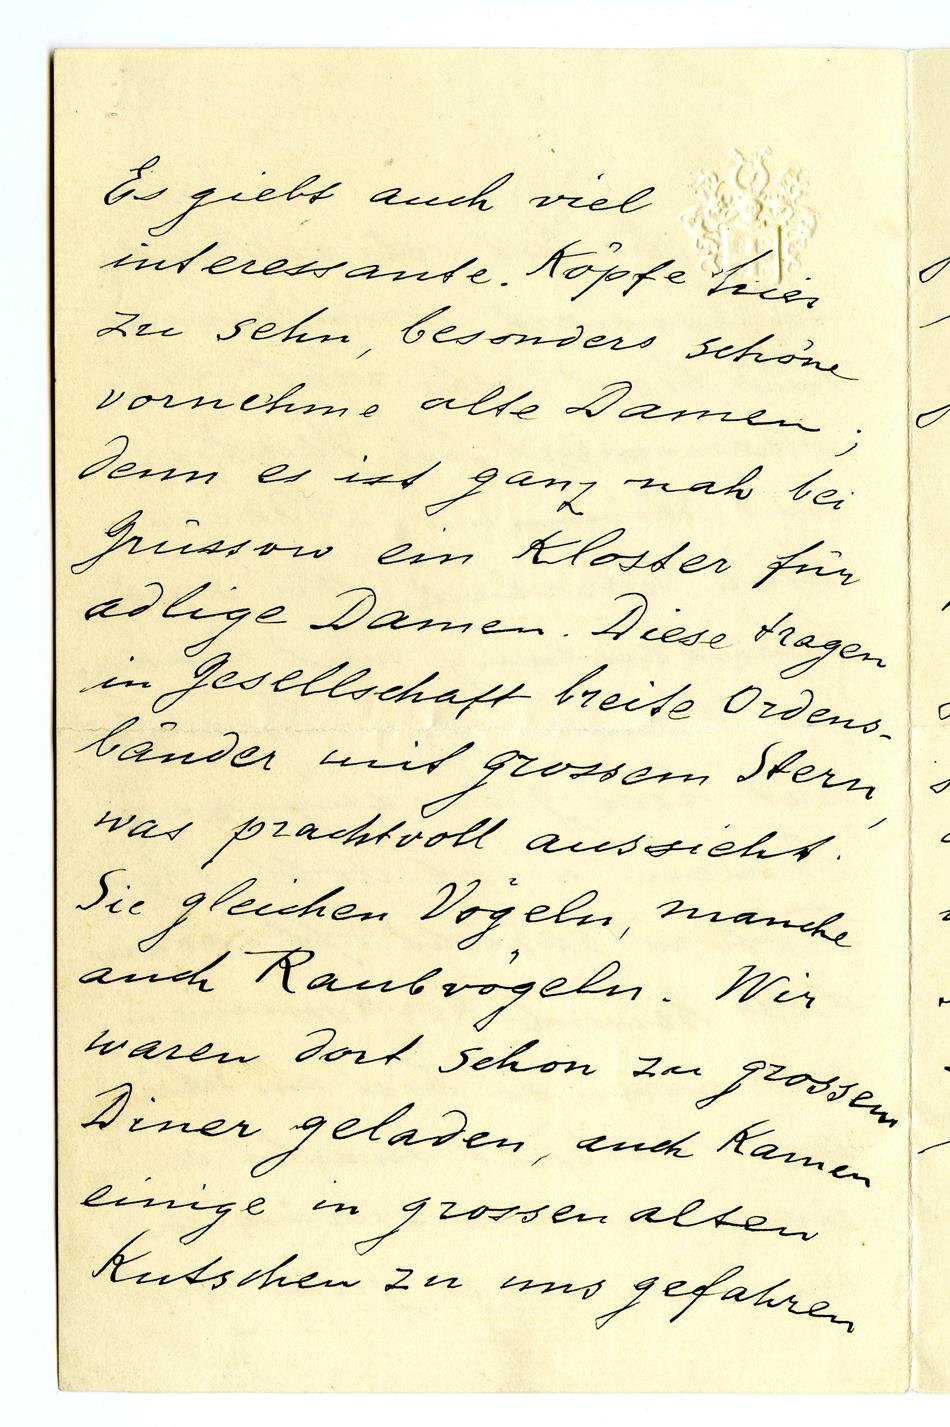 Es giebt auch viel
interessante. Köpfe hier
zu sehn, besonders schöne
vornehme alte Damen;
denn es ist ganz nah bei
Grüssow ein Kloster für
adlige Damen. Diese tragen
in Gesellschaft breite Ordens-
bänder mit grossem Stern,
was prachtvoll aussieht.
Sie gleichen Vögeln, manche
auch Raubvögeln. Wir
waren dort schon zu grossem
Diner geladen, auch Kamen
einige in grossen alten
Kutschen zu uns gefahren